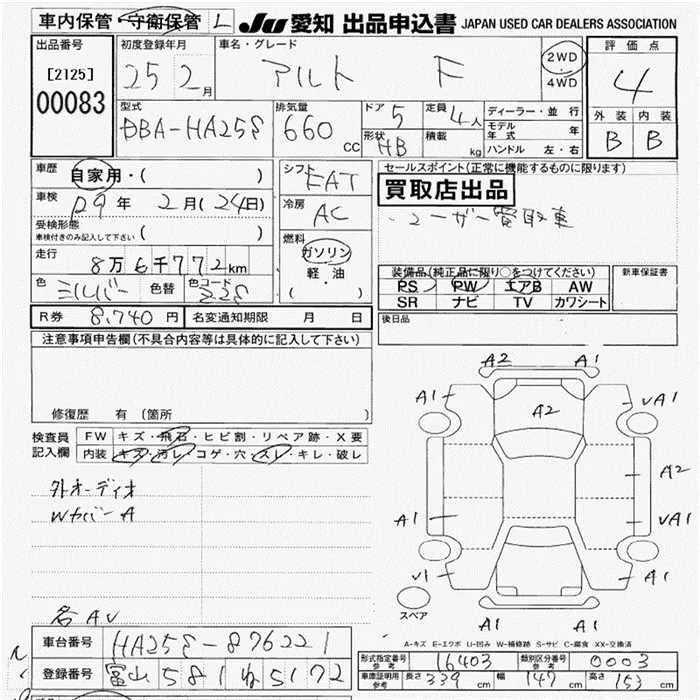 車内保管・守衛保管 L JU 愛知 出品申込書 JAPAN USED CAR DEALERS ASSOCIATION
出品番号 [2125] 00083
初度登録年月 25 2月
車名・グレード アルト F
2WD・4WD
評価点 4
外装 B 内装 B
型式 DBA-HA25S
排気量 660 cc
ドア 5
形状 HB
定員 4人
積載 kg
ディーラー・並行
モデル年式 年
ハンドル 左・右
車歴 自家用・( )
車検 29年 2月(24日)
受検形態 車検付きのみ記入して下さい ( )
走行 8万6千772km
色 シルバー 色替 色コード Z2S
R券 8,740円 名変通知期限 月 日
シフト FAT
冷房 AC
燃料 ガソリン・軽・油 ( )
セールスポイント(正常に機能するものに限ります)
買取店出品
・ユーザー買取車
装備品(純正品に限り○をつけてください) 新車保証書
PS PW エアB AW
SR ナビ TV カワシート
後日品
注意事項申告欄(不具合内容等は具体的に記入して下さい)
修復歴 有(箇所 )
検査員記入欄
FW キズ・飛石・ヒビ割・リペア跡・X要
内装 キズ・汚レ・コゲ・穴・スレ・キレ・破レ
外オーディオ
WカバーA
各AU
A2 A1
A1 A2 UA1
A2
A1 UA1
U1 A1
スペア A1 A1
A-キズ E-エクボ U-凹み W-補修跡 S-サビ C-腐食 XX-交換済
車台番号 HA25S-876221
登録番号 富山581ね5172
形式指定番号 参考 16403 類別区分番号 参考 0003
車庫証明用 参考 長さ 339 cm 幅 147 cm 高さ 153 cm